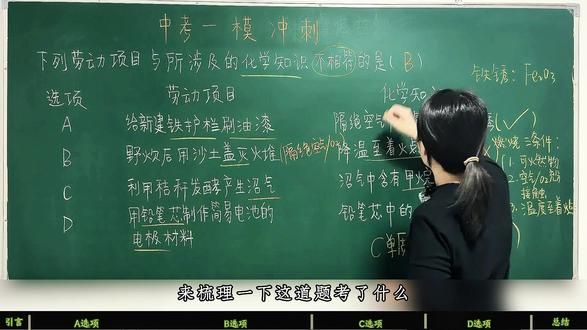 中考一模 冲刺
下列劳动项目与所涉及的化学知识不相符的是(B)
铁锈：Fe₂O₃
选项 劳动项目 化学知
A 给新建铁护栏刷油漆 隔绝空气 (✓)
B 野炊后用沙土盖灭火堆(隔绝空气/O₂ 降温至着火
燃烧三条件：
1. 可燃物
2. 空气/O₂
接触
3. 温度至着火
C 利用秸秆发酵产生沼气 沼气中含有甲烷
D 用铅笔芯制作简易电池的 铅笔芯中的
电极材料
C单质
来梳理一下这道题考了什么
引言 A选项 B选项 C选项 D选项 总结